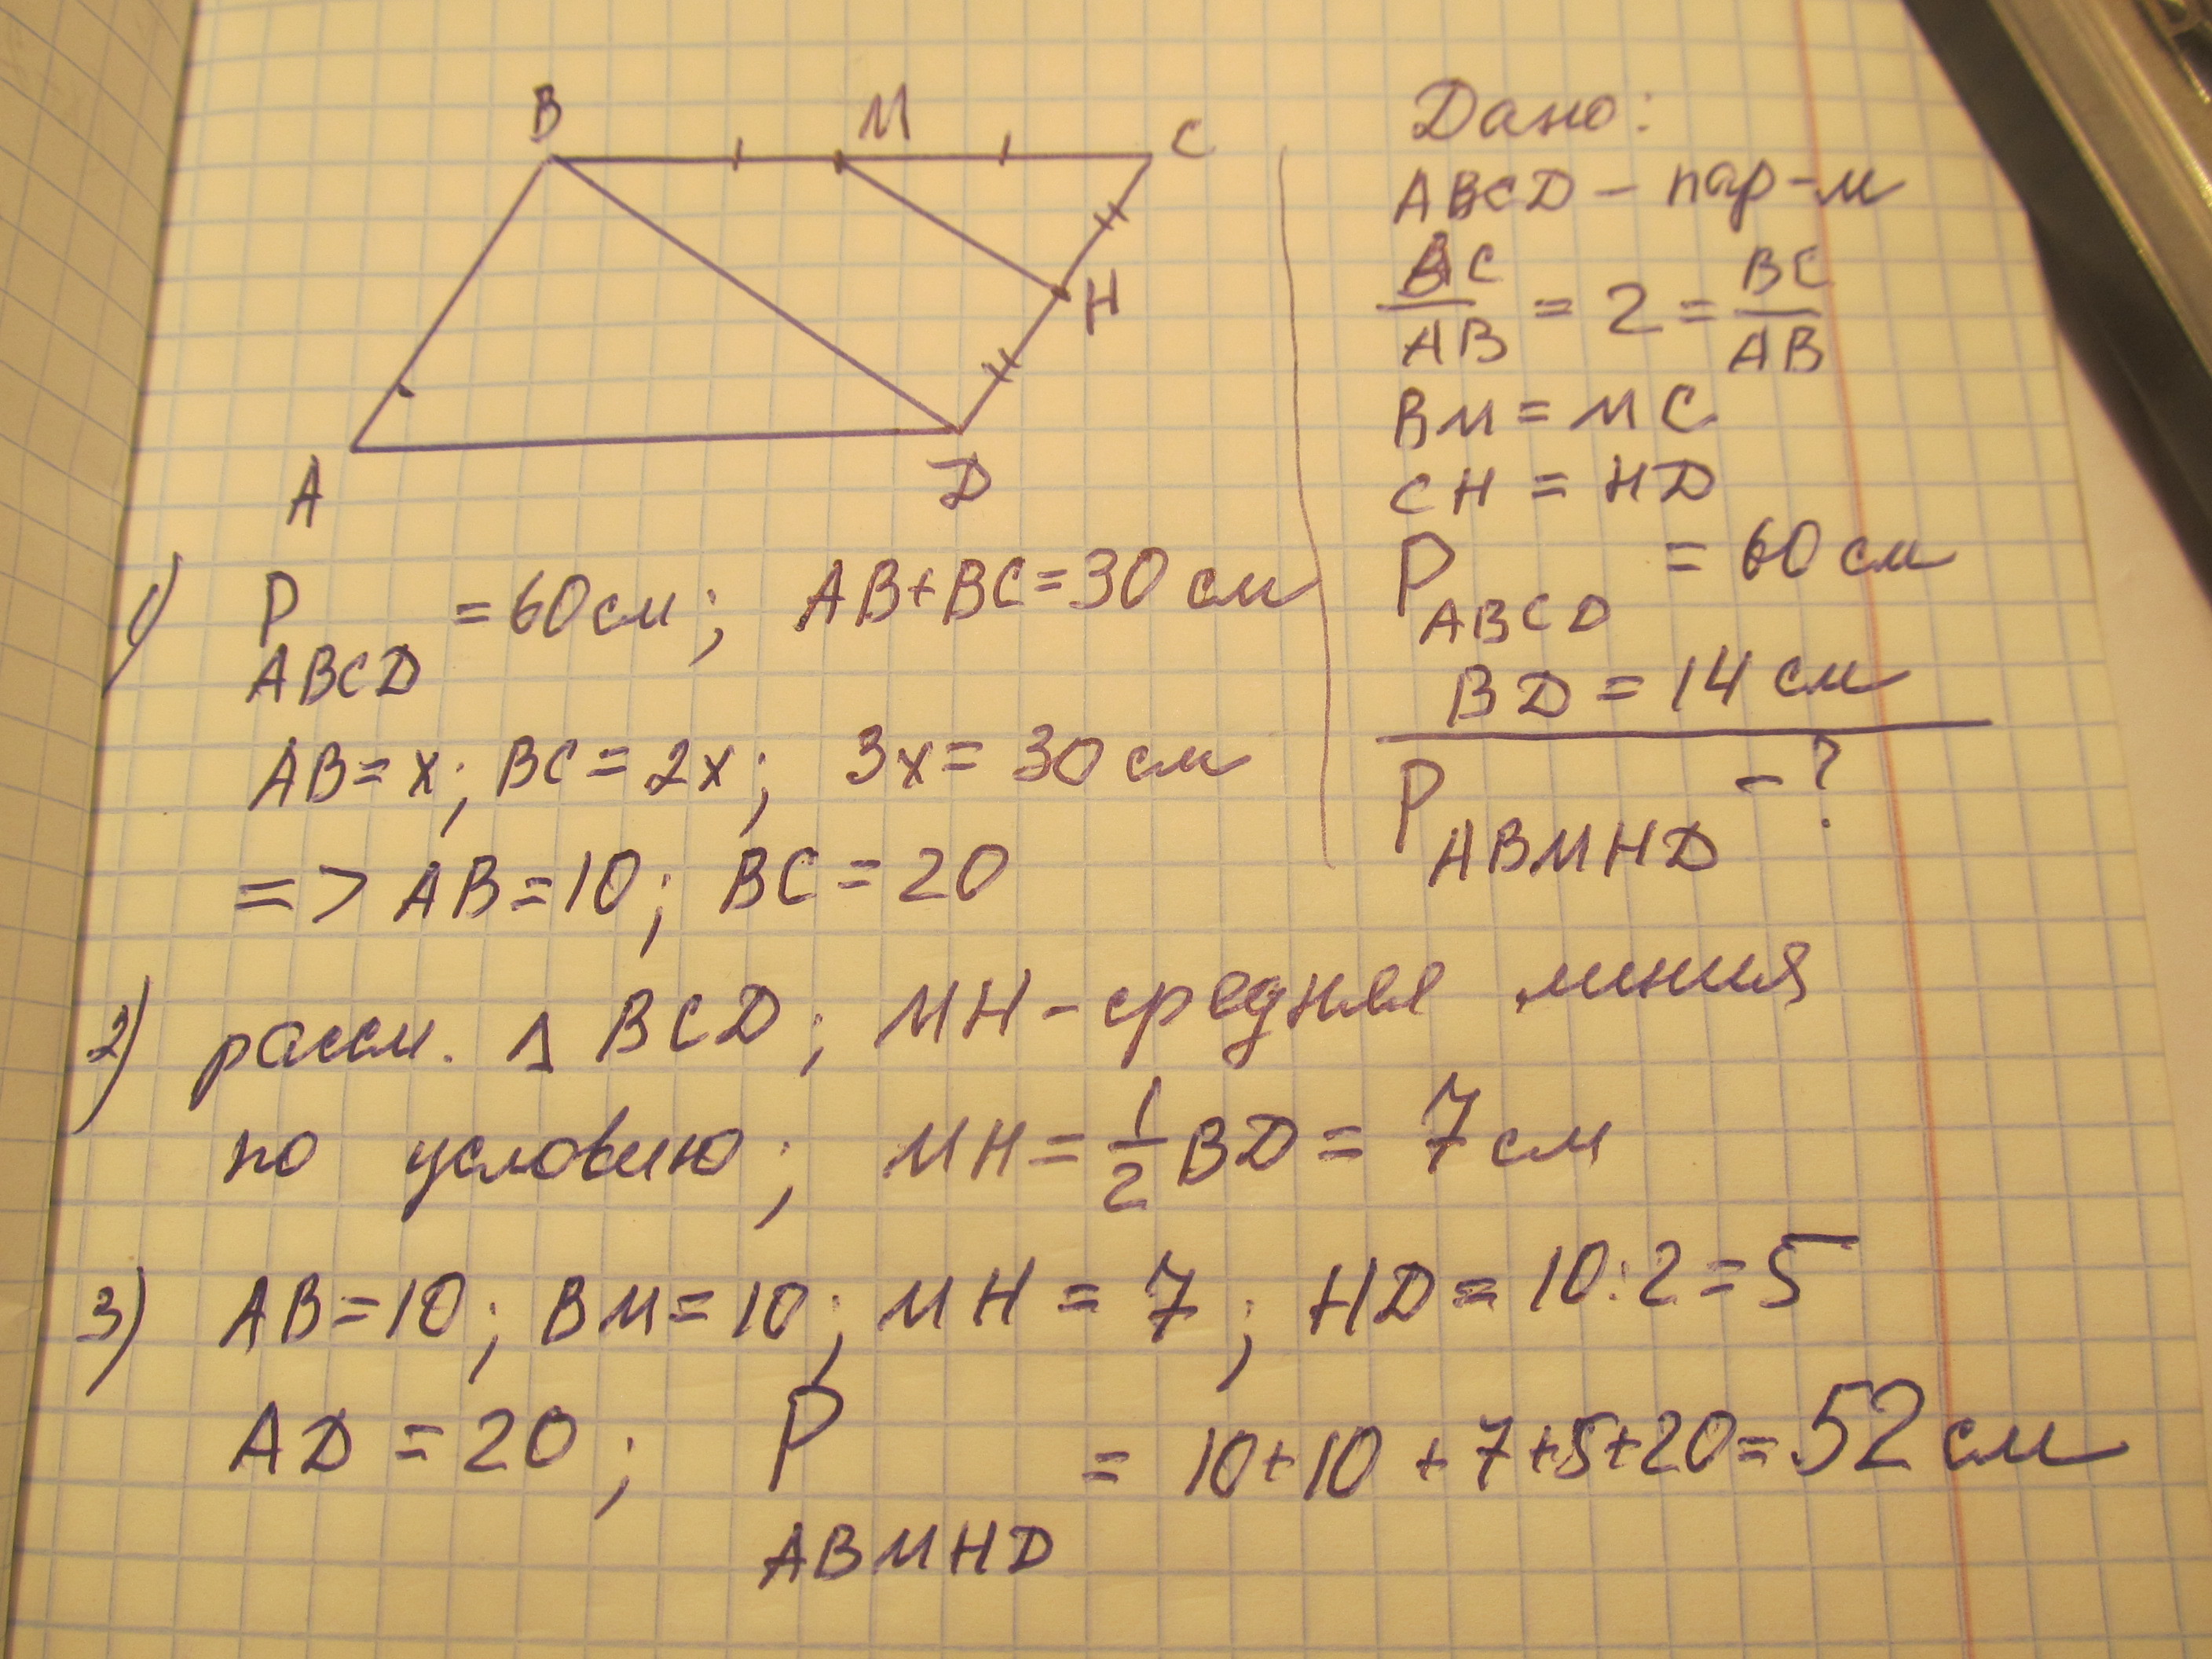 B M C
H
A D
Дано:
ABCD – пар-м
BC/AB = 2 = BC/AB
BM = MC
CH = HD
P ABCD = 60 см
BD = 14 см
P ABMHD – ?
1) P ABCD = 60 см; AB+BC=30 см
AB = x; BC = 2x; 3x = 30 см
=> AB = 10; BC = 20
2) рассм. Δ BCD; MH – средняя линия
по условию; MH = 1/2 BD = 7 см
3) AB=10; BM=10; MH = 7; HD = 10:2=5
AD = 20; P ABMHD = 10+10+7+5+20=52 см